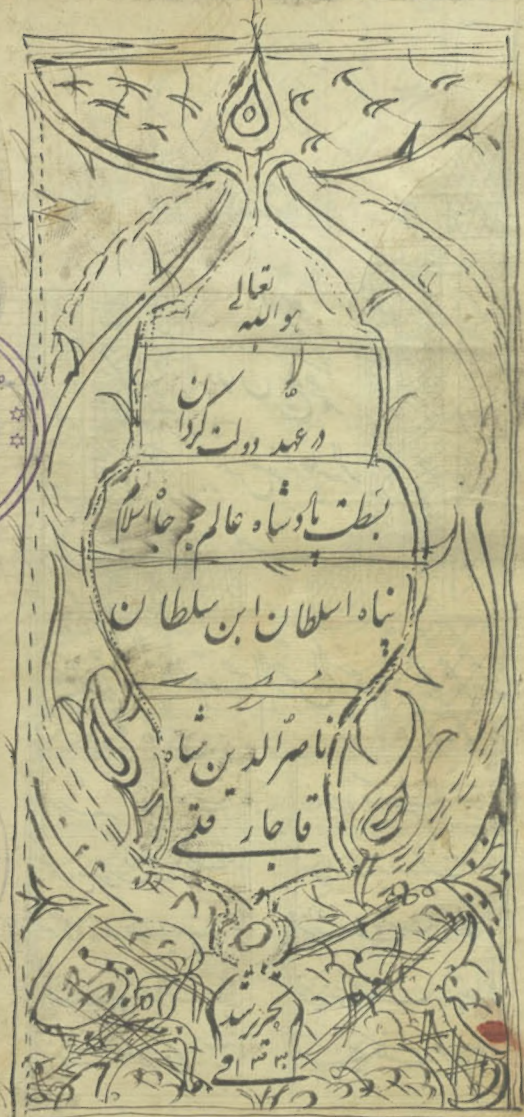 هو الله تعالی
در عهد دولت گردان
بسطت پادشاه عالم جم جاه اسلام
پناه اسلطان ابن سلطان
ناصر الدین شاه
قاجار قلمی
تحریر شد